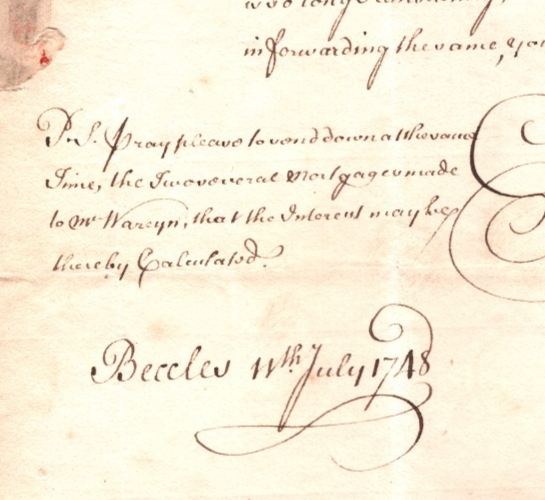 in forwarding the same, you
P.S. Pray please to send down at the same
Time, the Two several Mortgages made
to Mr. Wareyn, that the Interest may be
thereby Calculated.
Beccles 11th July 1748